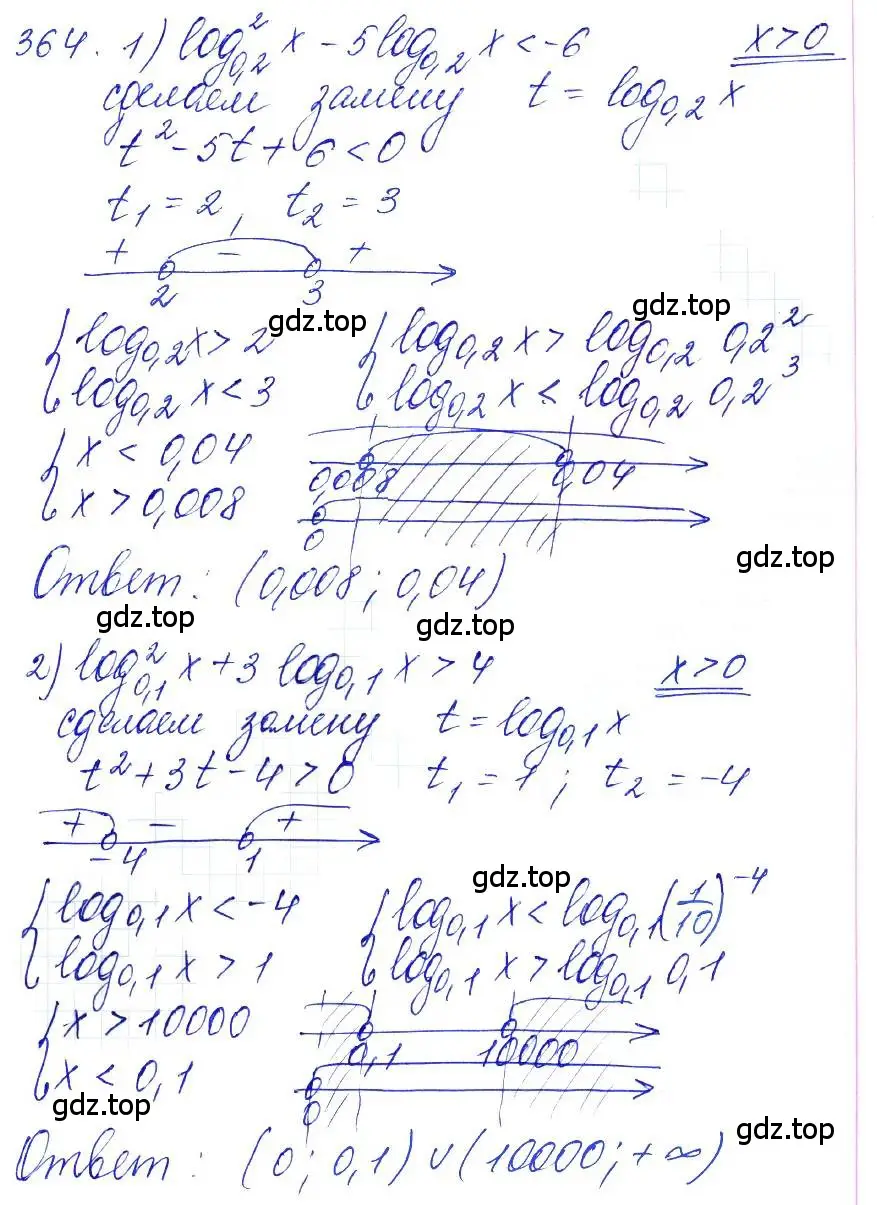 364. 1) log²₀,₂ x − 5 log₀,₂ x < −6   x > 0
сделаем замену t = log₀,₂ x
t² − 5t + 6 < 0
t₁ = 2, t₂ = 3
+ − +
2 3
{ log₀,₂ x > 2   { log₀,₂ x > log₀,₂ 0,2²
gdz.top gdz.top
{ log₀,₂ x < 3   { log₀,₂ x < log₀,₂ 0,2³
{ x < 0,04
0,008 0,04
{ x > 0,008
0
gdz.top
Ответ: (0,008; 0,04)
gdz.top gdz.top
2) log²₀,₁ x + 3 log₀,₁ x > 4   x > 0
сделаем замену t = log₀,₁ x
t² + 3t − 4 > 0   t₁ = 1; t₂ = −4
+ − +
−4 1
gdz.top
{ log₀,₁ x < −4   { log₀,₁ x < log₀,₁ (1/10)⁻⁴
{ log₀,₁ x > 1   { log₀,₁ x > log₀,₁ 0,1
{ x > 10000
0,1 10000
{ x < 0,1
0
gdz.top gdz.top
Ответ: (0; 0,1) ∪ (10000; +∞)